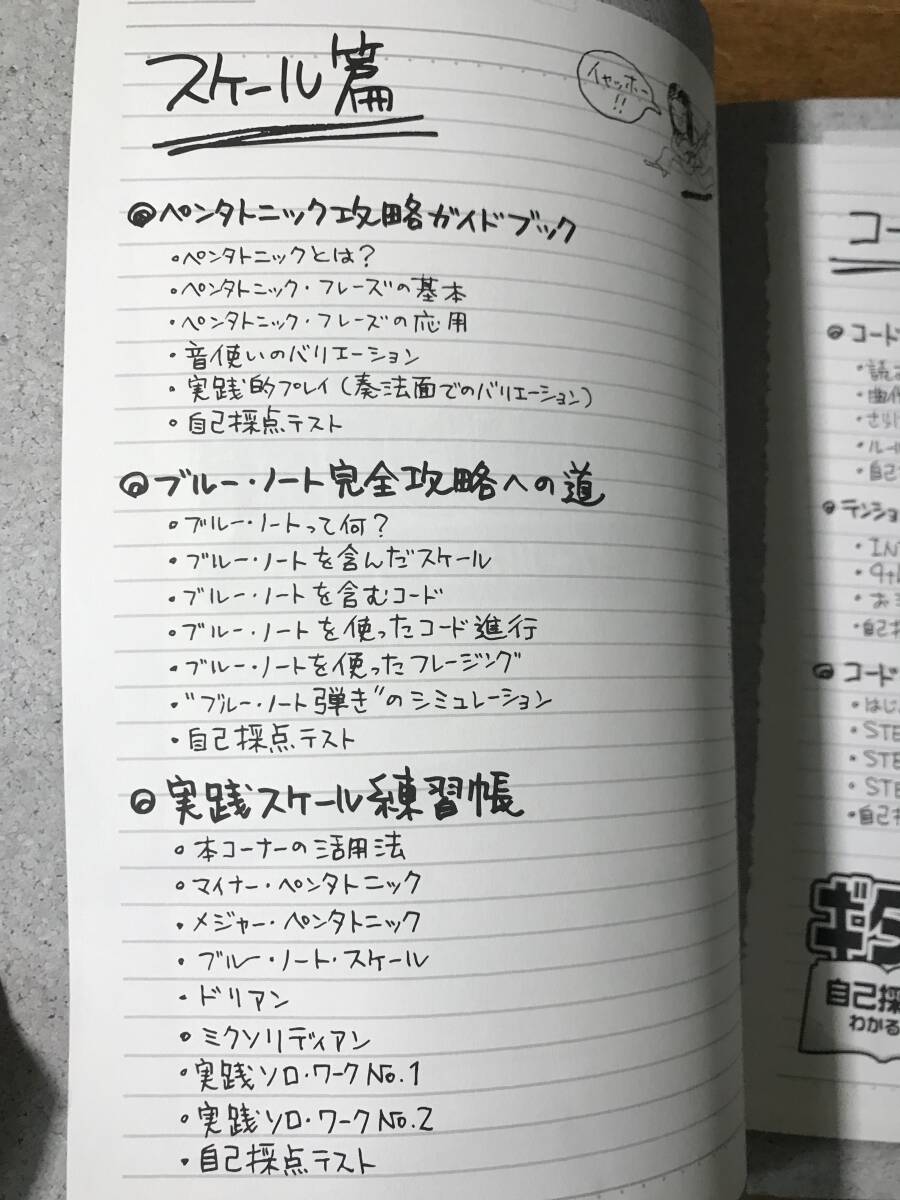 スケール篇
イヤッホー
!!
◎ペンタトニック攻略ガイドブック
・ペンタトニックとは?
・ペンタトニック・フレーズの基本
・ペンタトニック・フレーズの応用
・音使いのバリエーション
・実践的プレイ(奏法面でのバリエーション)
・自己採点テスト
◎ブルー・ノート完全攻略への道
・ブルー・ノートって何?
・ブルー・ノートを含んだスケール
・ブルー・ノートを含むコード
・ブルー・ノートを使ったコード進行
・ブルー・ノートを使ったフレージング
・"ブルー・ノート弾き"のシミュレーション
・自己採点テスト
◎実践スケール練習帳
・本コーナーの活用法
・マイナー・ペンタトニック
・メジャー・ペンタトニック
・ブルー・ノート・スケール
・ドリアン
・ミクソリディアン
・実践ソロ・ワークNo.1
・実践ソロ・ワークNo.2
・自己採点テスト
コー
◎コード
・読
・曲作
・さりげ
・ルー
・自己
◎テンショ
・INT
・9th
・お
・自己採
◎コード
・はじ
・STE
・STE
・STE
・自己採
ギタ
自己採
わかる